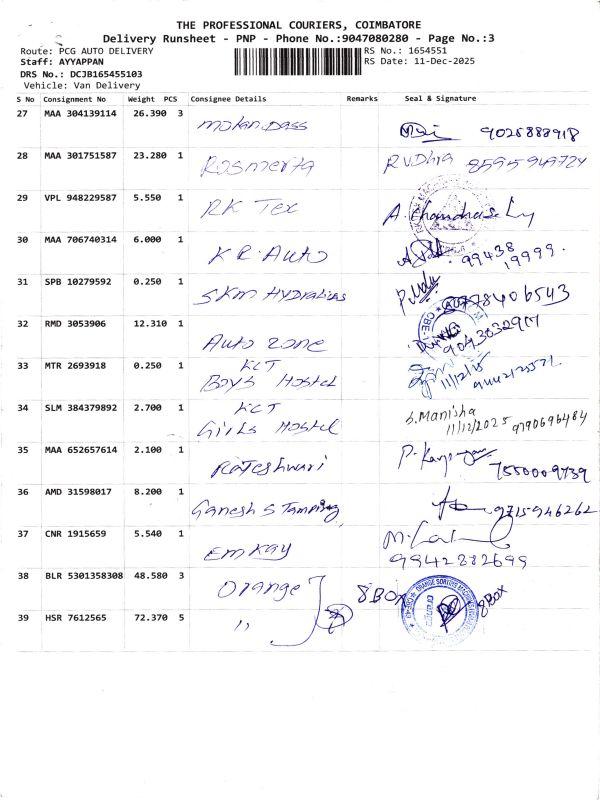 THE PROFESSIONAL COURIERS, COIMBATORE
Delivery Runsheet - PNP - Phone No.:9047080280 - Page No.:3
Route: PCG AUTO DELIVERY
RS No.: 1654551
Staff: AYYAPPAN
RS Date: 11-Dec-2025
DRS No.: DCJB165455103
Vehicle: Van Delivery
S No Consignment No Weight PCS Consignee Details Remarks Seal & Signature
27 MAA 304139114 26.390 3 Mohan Dass 9025883918
28 MAA 301751587 23.280 1 Rosmerta RVDhra 8595949724
29 VPL 948229587 5.550 1 RK Tex A. Chandrase
30 MAA 706740314 6.000 1 K R Auto 99438 19999.
31 SPB 10279592 0.250 1 SKM Hydralics 9778406543
32 RMD 3053906 12.310 1 Auto Zone
33 MTR 2693918 0.250 1 KCT Boys Hostel 11/12/25
34 SLM 384379892 2.700 1 KCT Girls Hostel S. Manisha 11/12/2025 9790696484
35 MAA 652657614 2.100 1 Rateshwari 7550009739
36 AMD 31598017 8.200 1 Ganesh Stamping 9715946262
37 CNR 1915659 5.540 1 EMKAY 9942882699
38 BLR 5301358308 48.580 3 Orange 8 BOX 8 BOX
39 HSR 7612565 72.370 5 "